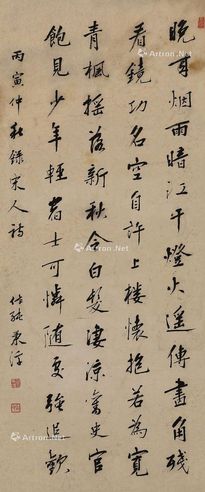 晚來烟雨暗江干燈火遙傳畫角殘
看鏡功名空自許上樓懷抱若為寬
青楓搖落新秋令白髮凄涼舊史官
飽見少年輕老士可憐随處強追歡
丙寅仲秋錄宋人詩